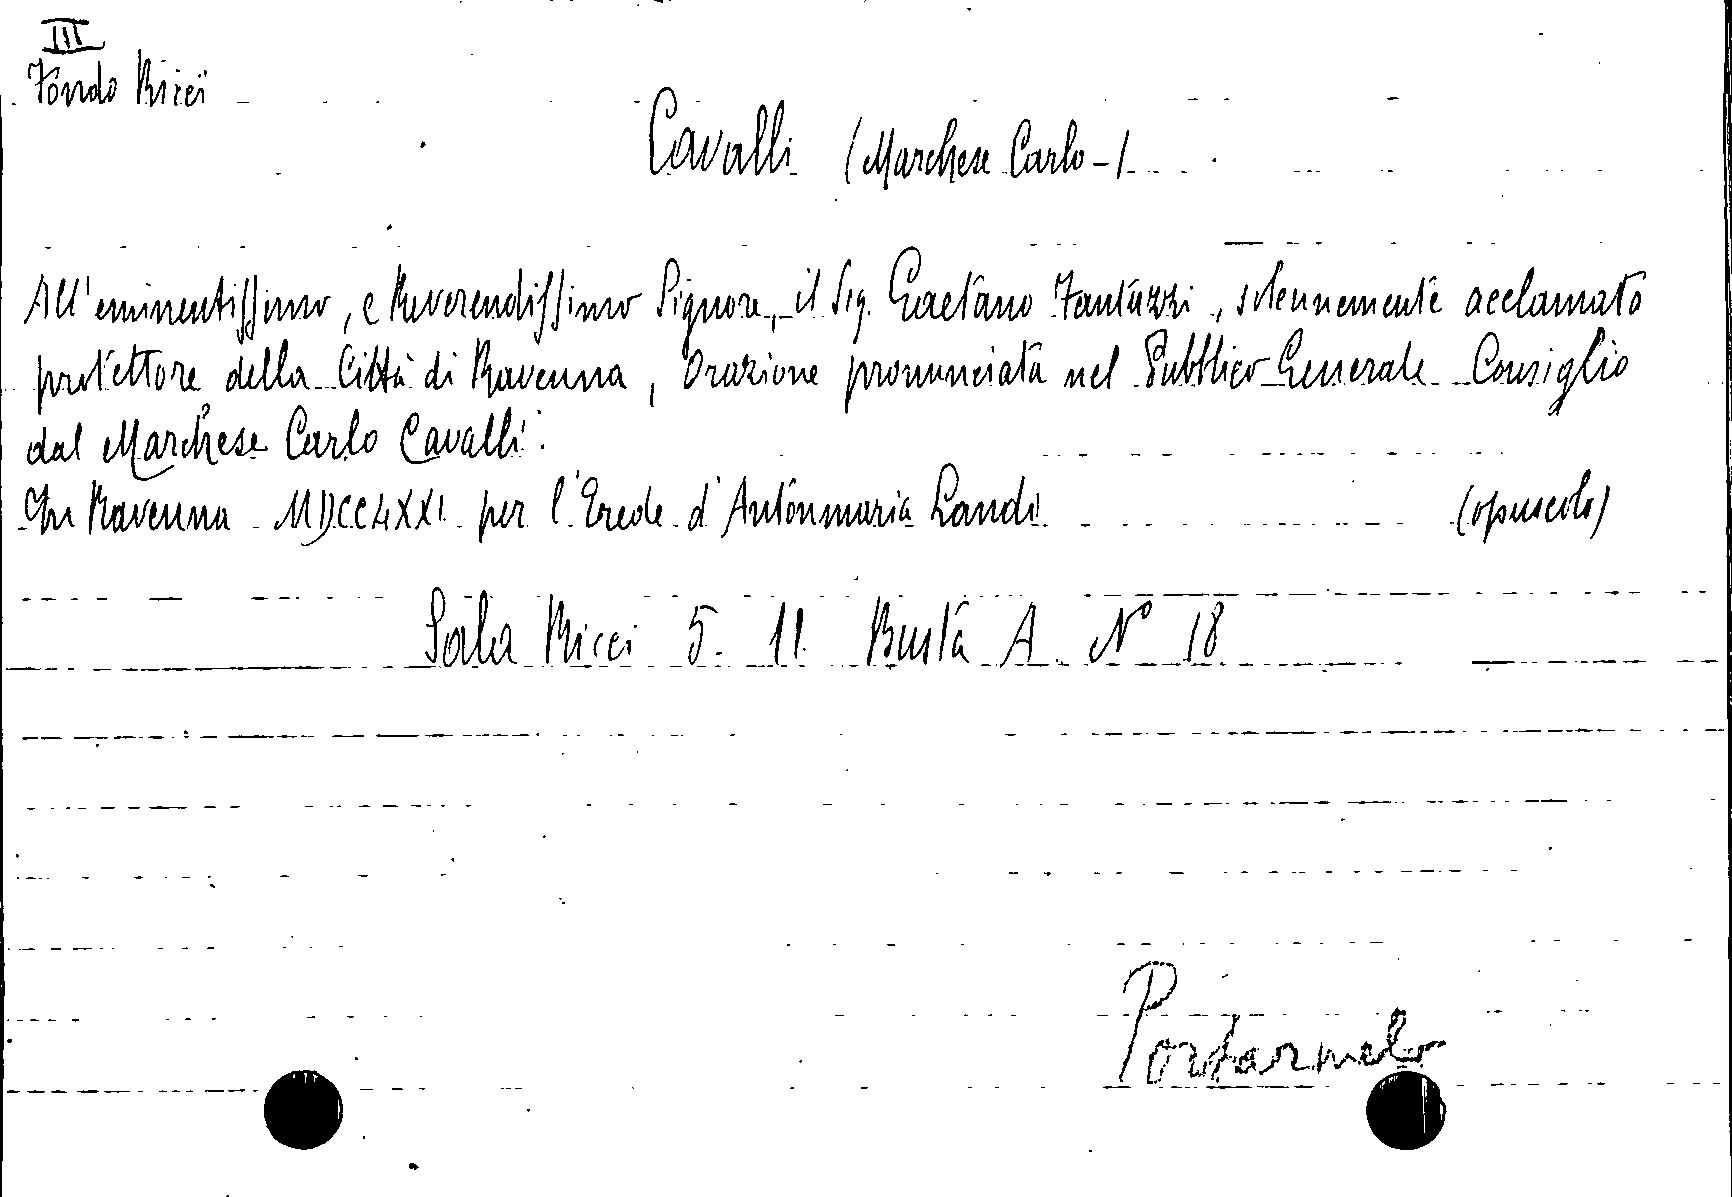 III
Fondo Ricci
Cavalli (Marchese Carlo-)
All'eminentissimo, e Reverendissimo Signore, il Sig. Gaetano Fantuzzi, solennemente acclamato
protettore della Città di Ravenna, Orazione pronunciata nel Pubblico Generale Consiglio
dal Marchese Carlo Cavalli.
In Ravenna MDCCLXXI per l'Erede d'Antonmaria Landi (opuscolo)
Sala Ricci 5. 11 Busta A N° 18